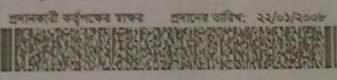 প্রদানকারী কর্তৃপক্ষের স্বাক্ষর প্রদানের তারিখ: ২২/০১/২০০৮